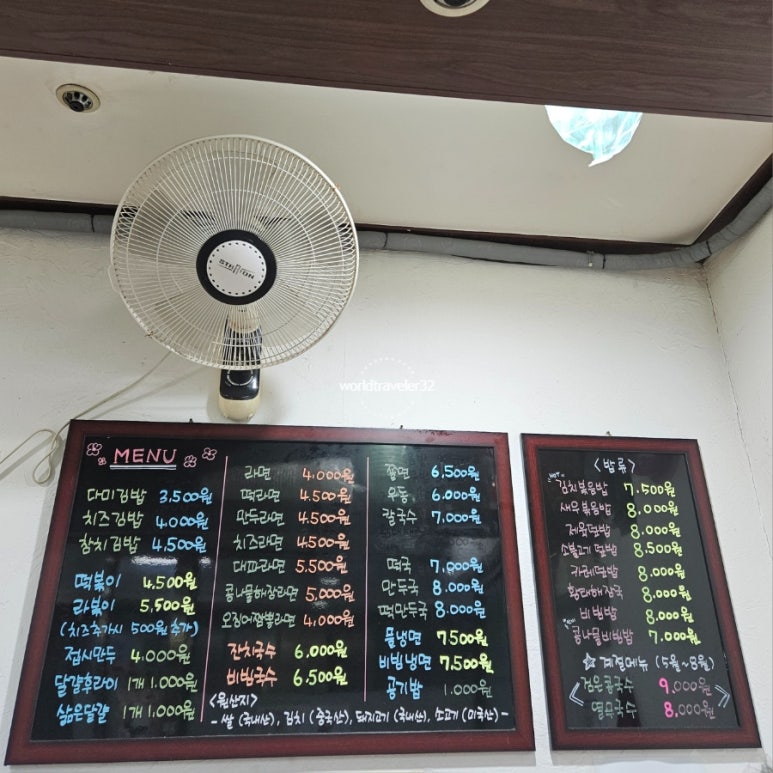 STELLON
worldtraveler32
MENU
다미김밥 3,500원
치즈김밥 4,000원
참치김밥 4,500원
떡볶이 4,500원
라볶이 5,500원
(치즈추가시 500원 추가)
접시만두 4,000원
달걀후라이 1개 1,000원
삶은달걀 1개 1,000원
라면 4,000원
떡라면 4,500원
만두라면 4,500원
치즈라면 4,500원
대파라면 5,500원
콩나물해장라면 5,000원
오징어짬뽕라면 4,000원
잔치국수 6,000원
비빔국수 6,500원
쫄면 6,500원
우동 6,000원
칼국수 7,000원
떡국 7,000원
만두국 8,000원
떡만두국 8,000원
물냉면 7,500원
비빔냉면 7,500원
공기밥 1,000원
<원산지>
- 쌀 (국내산), 김치 (중국산), 돼지고기 (국내산), 소고기 (미국산) -
<밥류>
김치볶음밥 7,500원
새우볶음밥 8,000원
제육덮밥 8,000원
소불고기 덮밥 8,500원
카레덮밥 8,000원
황태해장국 8,000원
비빔밥 8,000원
콩나물비빔밥 7,000원
☆ 계절메뉴 (5월~8월)
검은콩국수 9,000원
열무국수 8,000원